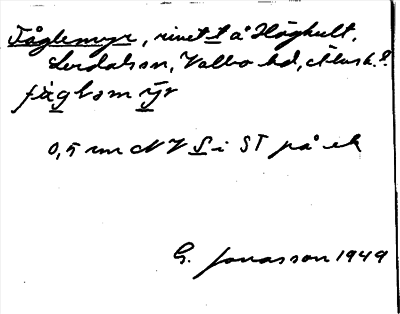 Fåglemyr, rivet t å Höghult,
Lerdalssn, Valbo hd, Älvsb.?
fåglamýr
0,5 mm NV S i ST på ek
G. Jonasson 1949